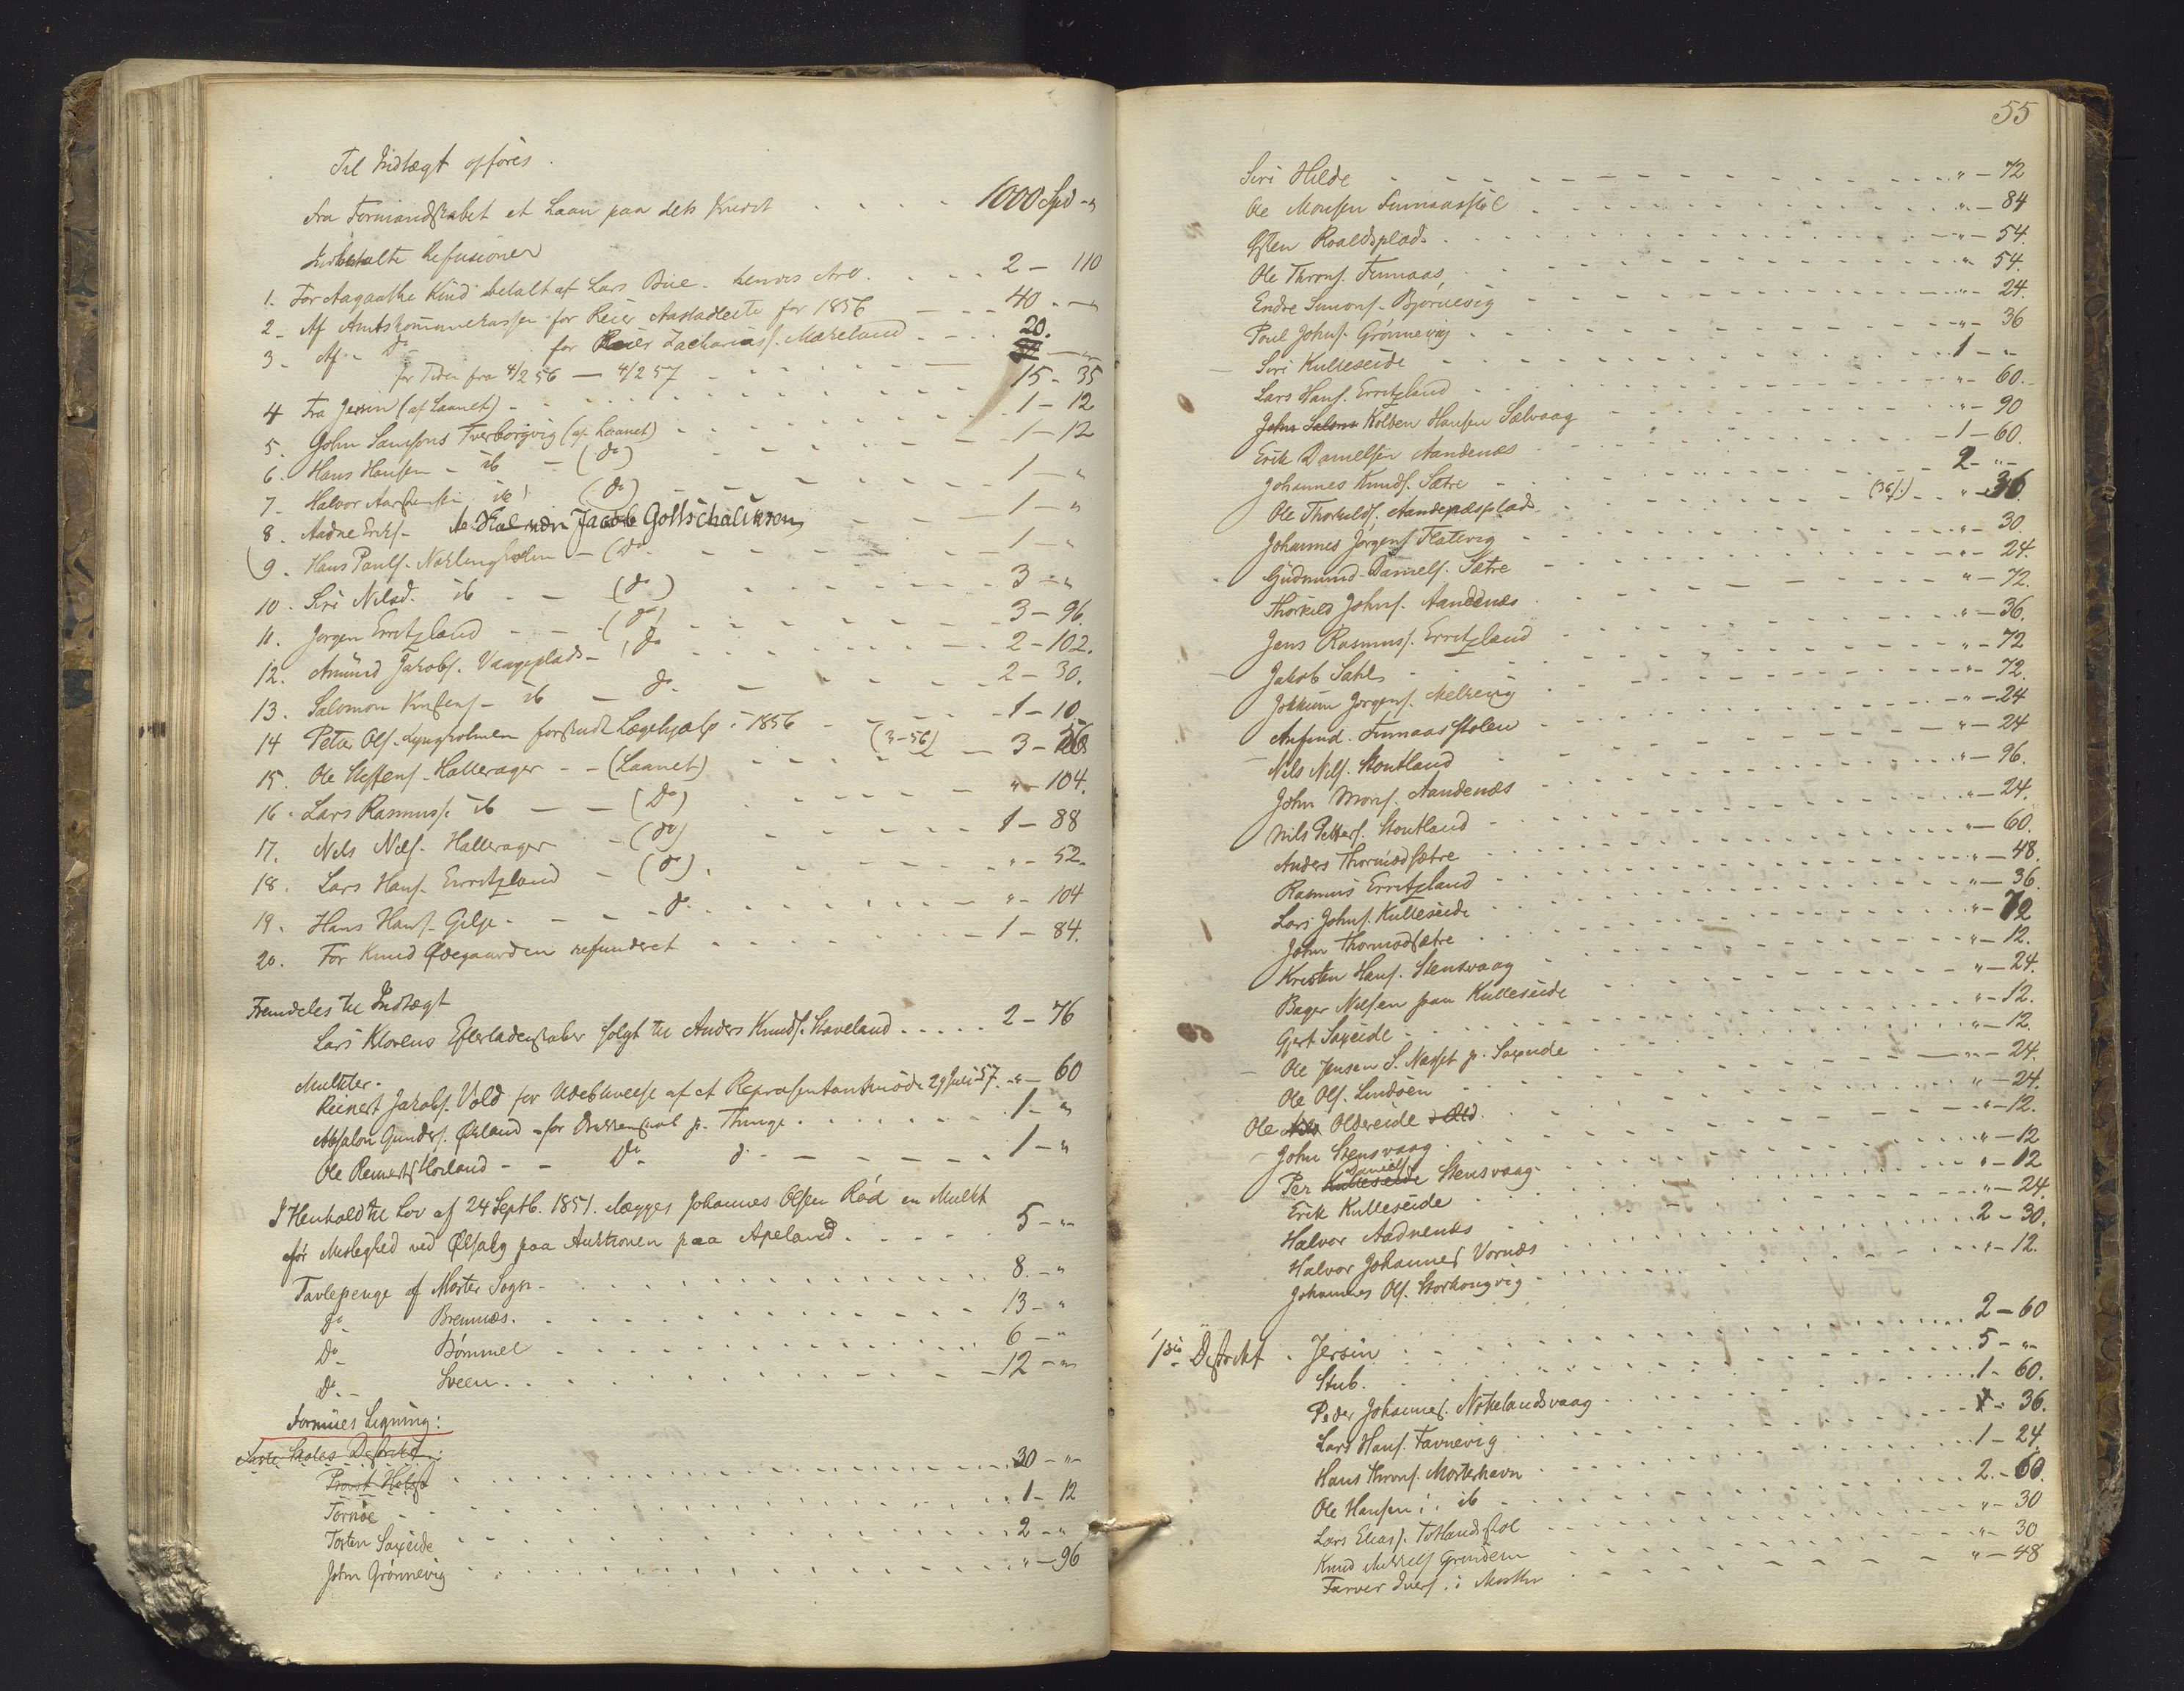 Til Indtægt opføres.
Fra Formandskabet et Laan paa dets Kredit 1000 Spd - "
Indbetalte Refusioner
1. For Aagaathe Kind betalt af Lars Bue. hendes Arv. 2 - 110
2 - Af Amtskommunekassen for Reier Aastadleite for 1856 40 - "
3 - Af - Do for Reier Zachariass. Mækeland 20. - "
for Tiden fra 4/2 56 — 4/2 57
4 Fra Jersin (af Laanet) - 15 - 35
5. John Samsons Tverborgvig (af Laanet) 1 - 12
6. Hans Hansen - ib - (do) 1 - 12
7 - Halvor ib (do) 1 - "
8. Aadne Eriks. - Jacob Gottschalksen 1 - "
9. Hans Pauls. Nøklingholm - (Do 1 - "
10. Siri Nilsd. ib - (do) 3 - "
11. Jørgen Erritzland - (do) 3 - 96.
12. Amund Jakobs. Vaageplads - do 2 - 102.
13. Salomon Knutens. - ib - do 2 - 30.
14 Peter Ols. Lyngholmen forskudt Lægehjælp i 1856 1 - 10
15. Ole Steffens. Hallerager - - (Laanet) (3-56) 3 - 56
16. Lars Rasmuss. ib - - (Do) " - 104.
17. Nils Nils. Hallerager - (do) 1 - 88
18. Lars Hans. Erritzland - (do) " - 52.
19. Hans Hans. Gilje - - do " - 104
20. For Knud Ødegaarden refunderet 1 - 84.
Fremdeles til Indtægt
Lars Klovens Efterladenskaber solgt til Anders Knuds. Staveland 2 - 76
Mulkter.
Reinert Jakobs. Vold for Udeblivelse af et Repræsentantmøde 29 Juli 57. " - 60
Absalon Gunders. Økland - for Drukkenskab p. Thinge 1 - "
Ole Reinerts. Hovland - - Do do 1 - "
I Henhold til Lov af 24 Septb. 1851. ilægges Johannes Olsen Rød en Mulkt
for Ulovlighed ved Ølsalg paa Auktionen paa Apeland 5 - "
Tavlepenge af Moster Sogn - 8 - "
do Bremnæs. 13 - "
Do Bømmel 6 - "
D. - Sveen. 12 - "
Formues Ligning:
Faste Skoles Distrikt:
Provst 30 - "
Tornøe 1 - 12
Torten Saxeide 2 - "
John Grønnevig " - 96
55
Siri Hilde " - 72
Ole Monsen Finnaasstøl " - 84
Østen Roaldsplads " - 54.
Ole Throns. Finnaas " 54.
Endre Simons. Bjørnevig " - 24.
Poul Johns. Grønnevig " - 36
Siri Kulleseide 1 - "
Lars Hans. Erritzland " - 60.
John Salom Kolben Hansen Sælvaag " - 90
Erik Danielsen Aandenæs 1 - 60.
Johannes Knuds. Sætre 2 - "
Ole Thorkilds. Aandenæsplads (36 s.) " - 36
Johannes Jørgens. Flatevig " - 30
Gudmund Daniels. Sætre " - 24.
Thorkild Johns. Aandenæs " - 72.
Jens Rasmuss. Erritzland " - 36.
Jakob Sahl " - 72
Jokkum Jørgens. Melkevig " - 72.
Anfind. Finnaasstølen " - 24
Nils Nils. Stoutland " - 24
John Mons. Aandenæs " - 96.
Nils Petters. Stoutland " - 24.
Anders Thormodsætre " - 60.
Rasmus Erritzland " - 48.
Lars Johns. Kulleseide " - 36.
John Thormodsætre " - 72
Kristen Hans. Stensvaag " - 12.
Bager Nilsen paa Kulleseide " - 24.
Gjert Saxeide " - 12.
Ole Jensen S. Næsset p. Saxeide " - 12.
Ole Ols. Lindøen " - 24.
Ole Oldereide " - 24.
John Stensvaag " - 12.
Per Kulleseide Daniels. Stensvaag " - 12
Erik Kulleseide " - 12
Halvor Aadnenæs " - 24.
Halvor Johannes. Vornæs 2 - 30.
Johannes Ols. Storhougvig " - 12.
1ste Distrikt. Jersin 2 - 60
Stub. 5 - "
Peder Johannes. Nokelandsvaag 1 - 60.
Lars Hans. Tavnevig - 36.
Hans Throns. Mosterhavn 1 - 24.
Ole Hansen i ib 2 - 60.
Lars Elias. Totlandsstøl " - 30
Knud Mikkels. Grindem " - 30
Farver Ivers. i Moster " - 48